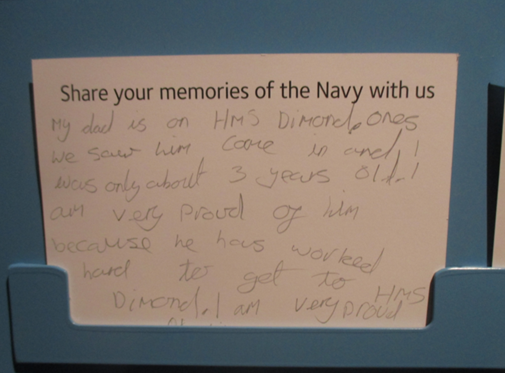 Share your memories of the Navy with us
My dad is on HMS Dimond. Ones
we saw him come in and I
was only about 3 years old. I
am very proud of him
because he has worked
hard to get to HMS
Dimond. I am very proud